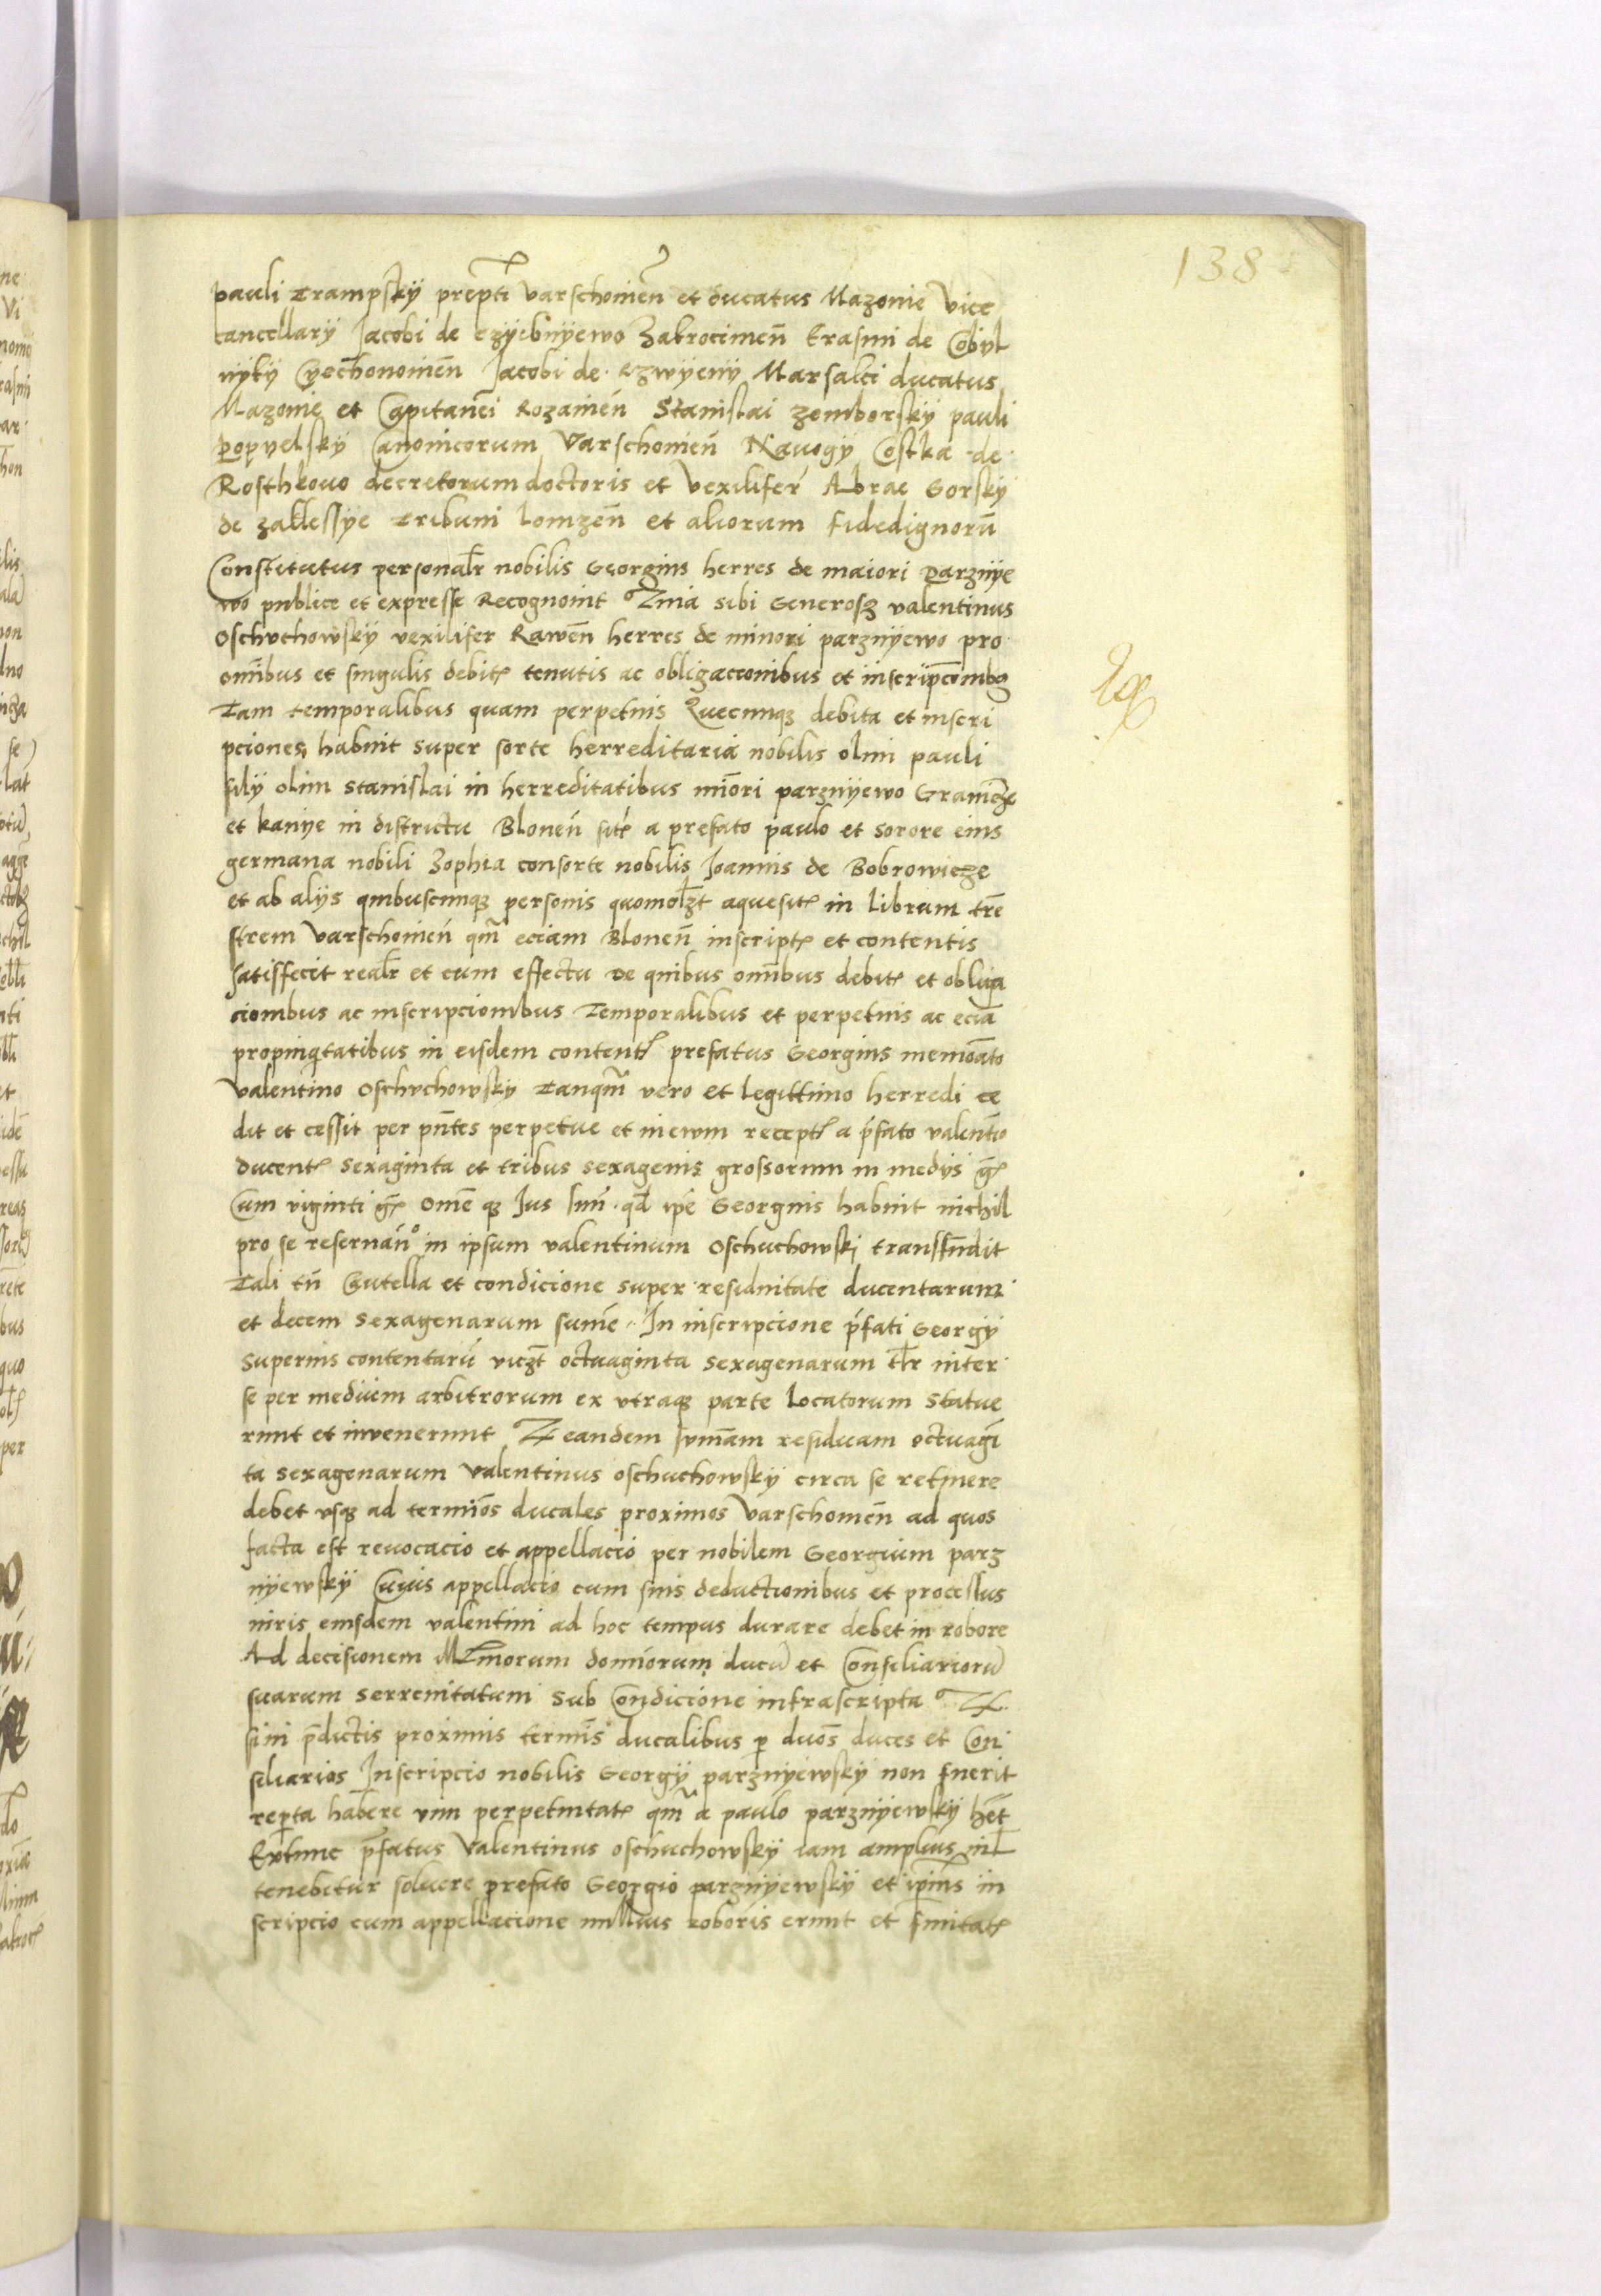 138
pauli Trampsky prepti varschouien et ducatus Mazouie vice
cancellarÿ Jacobi de czyibnÿewo Zakrocimen Erasmi de Cobyl
nÿkÿ Cyechonouien Jacobi de Rzwÿenÿ Marsalci ducatus
Mazouie et Capitanei Rozanien Stanislai zomborskÿ pauli
popyelskÿ Canonicorum Varschouien Nauogÿ Costka de
Rosthkouo decretorum doctoris et vexiliferi Abrae Gorskÿ
de zallessÿe Tribuni lomzen et aliorum fidedignorū
Constitutus personalr nobilis Georgius herres de maiori parznÿe
wo publice et expresse Recognouit sibi Generosz valentinus
oschuchowskÿ vexilifer Rawen herres de minori parznÿewo pro
omībus et singulis debitis tenutis ac obligaccionibus et inscripcōnibz
Tam temporalibus quam perpetuis Quecunqz debita et inscri
pciones habuit super sorte herreditaria nobilis olim pauli
filÿ olim stanislai in herreditatibus miōri parznÿewo Granicze
et kanÿe in districtu Blonen sitis a prefato paulo et sorore eius
germana nobili Zophia consorte nobilis Joannis de Bobrowicze
et ab alÿs quibuscunqz personis quomolzt aquesitis in librum tre
strem varschouien qm eciam Blonen inscriptis et contentis
satisfecit realr et cum effectu de quibus omībus debitis et obliga
cionibus ac inscripcionibus Temporalibus et perpetuis ac eciā
propinqtatibus in eisdem contentis prefatus Georgius memōato
valentino oschuchowsky Tanqm vero et legittimo herredi ce
dit et cessit per pntes perpetue et in ewm receptis a pfato valentīo
ducentis sexaginta et tribus sexagenis grossorum in medÿs gr
Cum viginti gr ome qz Jus suū qd ipe Georgius habuit nichil
pro se reseruando in ipsum valentinum oschuchowski transfudit
Tali tn Cautella et condicione super residuitate ducentarum
et decem sexagenarum sume In inscripcione pfati Georgÿ
superius contentarū viczt octuaginta sexagenarum tlr inter
se per medium arbitrorum ex vtraqz parte locatorum statue
runt et inuenerunt eandem sumam residuam octuagi
ta sexagenarum valentinus oschuchowskÿ circa se retinere
debet vsqz ad termios ducales proximos varschouien ad quos
facta est reuocacio et appellacio per nobilem Georgium parz
nÿewskÿ Cuius appellacio cum suis deductionibus et processus
iuris eiusdem valentini ad hoc tempus durare debet in robore
Ad decisionem dominorum ducū et Consiliariorū
suarum serrenitatum sub Condicione infrascripta
si in pdictis proximis terminis ducalibus p duos duces et Con
siliarios Inscripcio nobilis Georgÿ parznÿewskÿ non fuerit
reperta habere vim perpetuitatis qm a paulo parznÿewskÿ het
Extunc pfatus valentinus oschuchowskÿ iam amplius nil
tenebitur soluere prefato Georgio parznÿewskÿ et ipius in
scripcio cum appellacione nullius roboris erunt et firmitatis